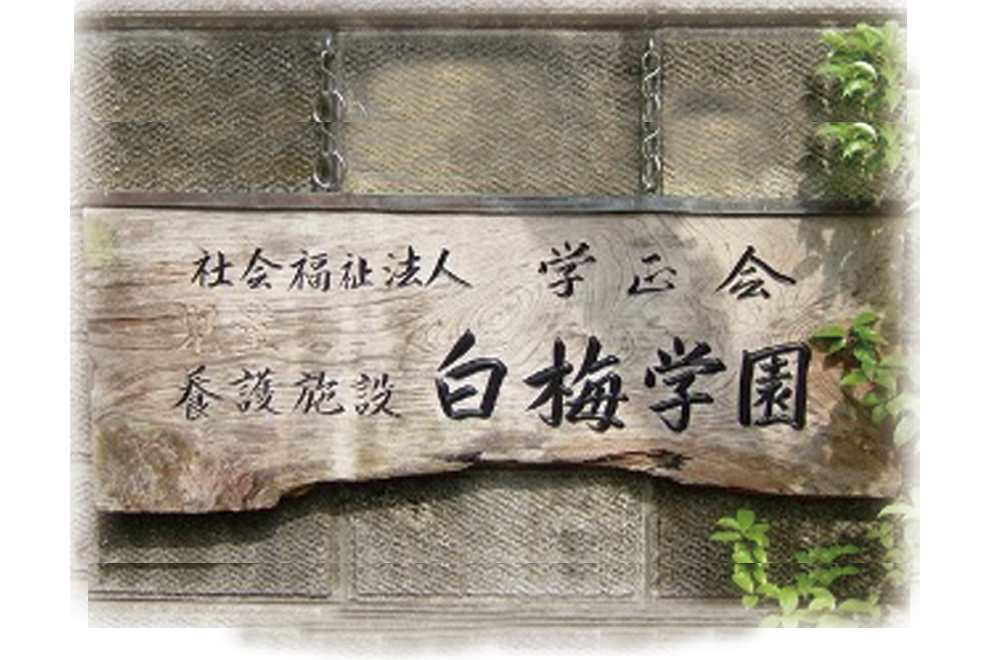 社会福祉法人 学正会
児童
養護施設 白梅学園